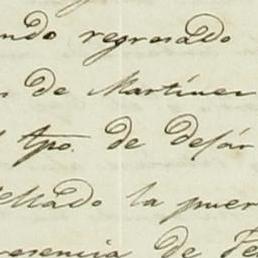 ndo regresado
de Martinez
tpo. de dejár
ellado la puer
resencia de Fe